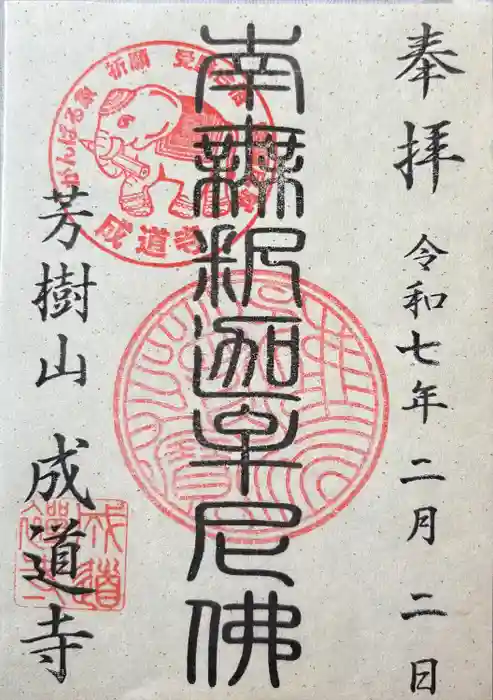 奉拝 令和七年二月二日
南無釈迦牟尼佛
芳樹山 成道寺
がんばる象 祈願 受
成道寺
成道